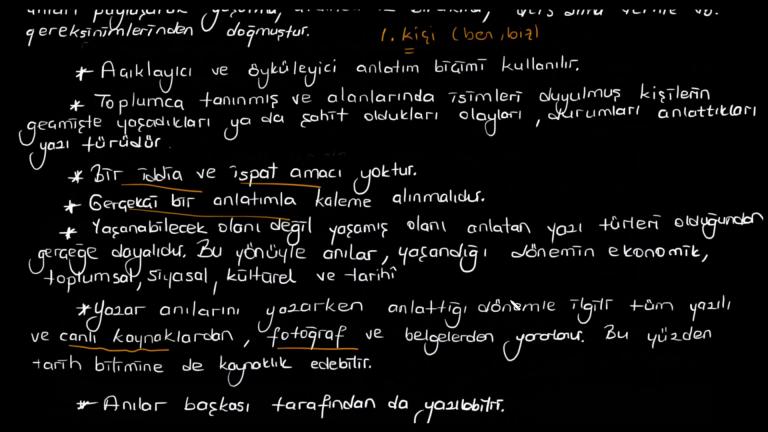 gereksinimlerinden doğmuştur. 1. kişi (ben, biz)
* Açıklayıcı ve öyküleyici anlatım biçimi kullanılır.
* Toplumca tanınmış ve alanlarında isimleri duyulmuş kişilerin
geçmişte yaşadıkları ya da şahit oldukları olayları, durumları anlattıkları
yazı türüdür.
* Bir iddia ve ispat amacı yoktur.
* Gerçekçi bir anlatımla kaleme alınmalıdır.
* Yaşanabilecek olanı değil yaşamış olanı anlatan yazı türleri olduğundan
gerçeğe dayalıdır. Bu yönüyle anılar, yaşandığı dönemin ekonomik,
toplumsal, siyasal, kültürel ve tarihî
* Yazar anılarını yazarken anlattığı dönemle ilgili tüm yazılı
ve canlı kaynaklardan, fotoğraf ve belgelerden yararlanır. Bu yüzden
tarih bilimine de kaynaklık edebilir.
* Anılar başkası tarafından da yazılabilir.